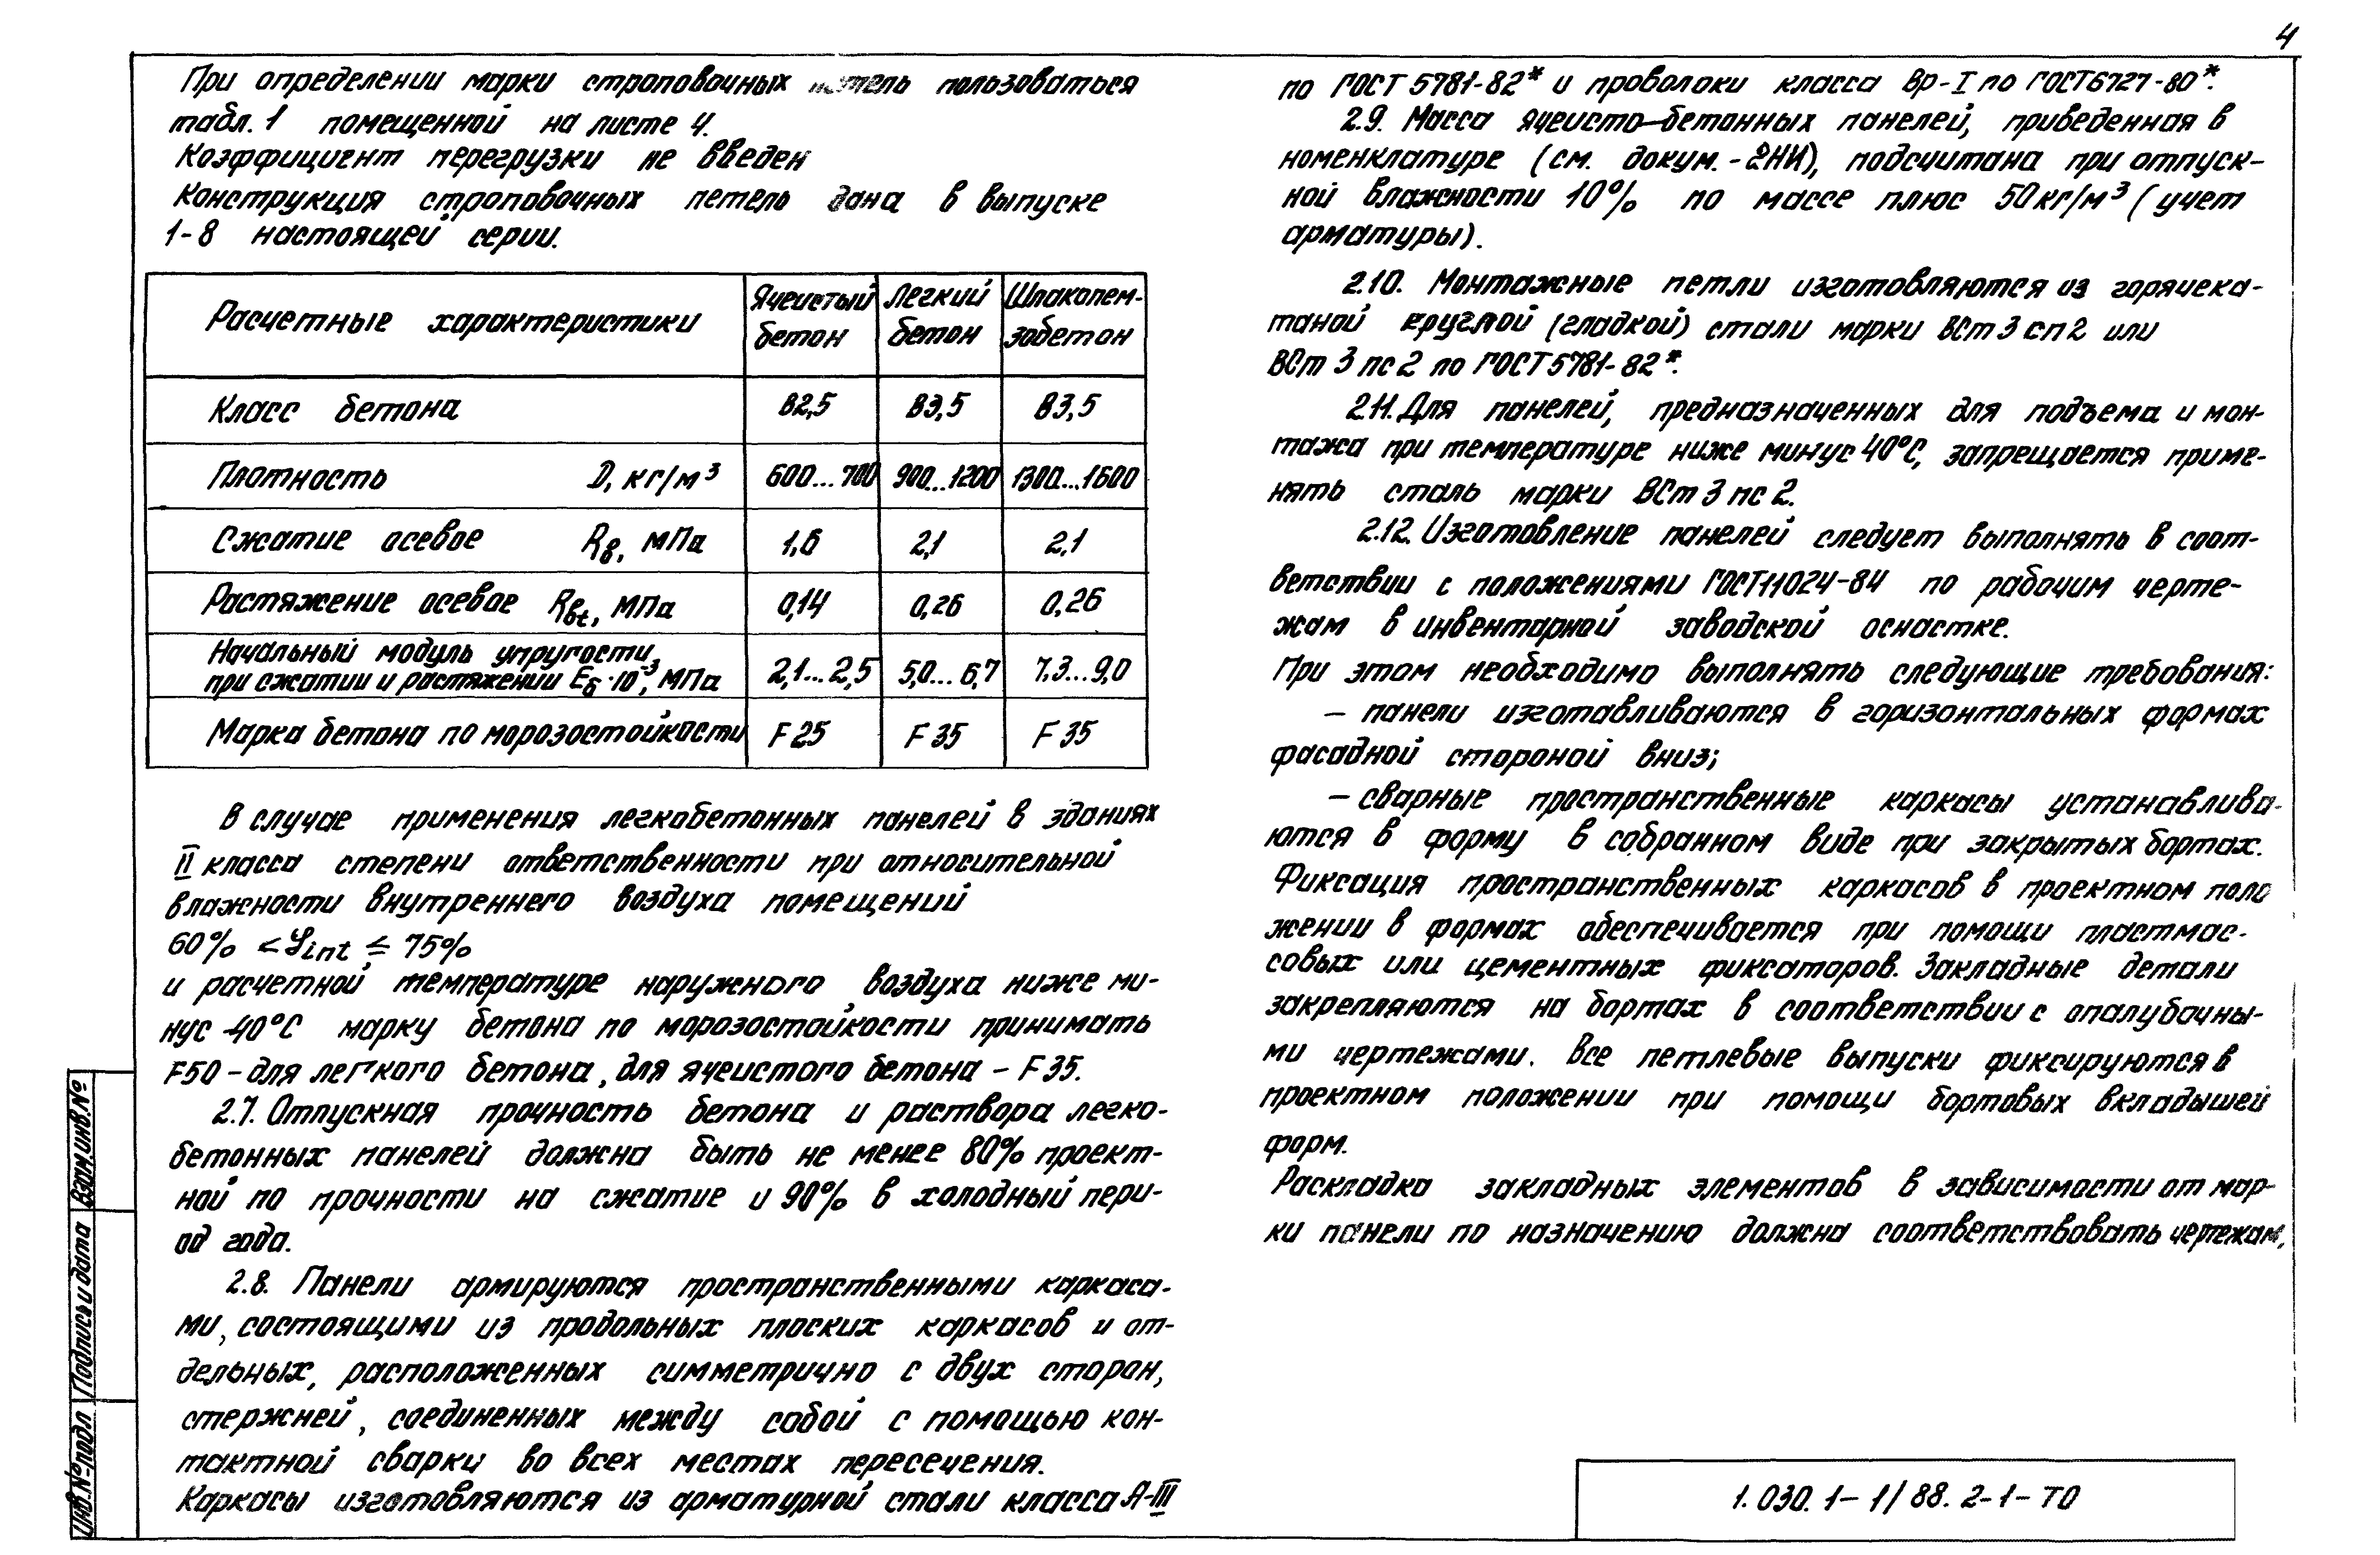 4
При определении марки строповочных петель пользоваться
табл. 1 помещенной на листе 4.
Коэффициент перегрузки не введен
Конструкция строповочных петель дана в выпуске
1-8 настоящей серии.
Расчетные характеристики | Ячеистый бетон | Легкий бетон | Шлакопем-зобетон
Класс бетона | В2,5 | В3,5 | В3,5
Плотность D, кг/м³ | 600...700 | 900...1200 | 1300...1600
Сжатие осевое Rв, МПа | 1,6 | 2,1 | 2,1
Растяжение осевое Rвt, МПа | 0,14 | 0,26 | 0,26
Начальный модуль упругости
при сжатии и растяжении Eб·10⁻³, МПа | 2,1...2,5 | 5,0...6,7 | 7,3...9,0
Марка бетона по морозостойкости | F25 | F35 | F35
В случае применения легкобетонных панелей в зданиях
II класса степени ответственности при относительной
влажности внутреннего воздуха помещений
60% < φint ≤ 75%
и расчетной температуре наружного воздуха ниже ми-
нус 40°С марку бетона по морозостойкости принимать
F50 - для легкого бетона, для ячеистого бетона - F35.
2.7. Отпускная прочность бетона и раствора легко-
бетонных панелей должна быть не менее 80% проект-
ной по прочности на сжатие и 90% в холодный пери-
од года.
2.8. Панели армируются пространственными каркаса-
ми, состоящими из продольных плоских каркасов и от-
дельных, расположенных симметрично с двух сторон,
стержней, соединенных между собой с помощью кон-
тактной сварки во всех местах пересечения.
Каркасы изготовляются из арматурной стали класса А-III
по ГОСТ 5781-82* и проволоки класса Вр-I по ГОСТ6727-80*.
2.9. Масса ячеисто-бетонных панелей, приведенная в
номенклатуре (см. докум. - 2НИ), подсчитана при отпуск-
ной влажности 10% по массе плюс 50кг/м³ (учет
арматуры).
2.10. Монтажные петли изготовляются из горячека-
таной круглой (гладкой) стали марки ВСт 3 сп 2 или
ВСт 3 пс 2 по ГОСТ 5781-82*.
2.11. Для панелей, предназначенных для подъема и мон-
тажа при температуре ниже минус 40°С, запрещается приме-
нять сталь марки ВСт 3 пс 2.
2.12. Изготовление панелей следует выполнять в соот-
ветствии с положениями ГОСТ11024-84 по рабочим черте-
жам в инвентарной заводской оснастке.
При этом необходимо выполнять следующие требования:
- панели изготавливаются в горизонтальных формах
фасадной стороной вниз;
- сварные пространственные каркасы устанавлива-
ются в форму в собранном виде при закрытых бортах.
Фиксация пространственных каркасов в проектном поло
жении в формах обеспечивается при помощи пластмас-
совых или цементных фиксаторов. Закладные детали
закрепляются на бортах в соответствии с опалубочны-
ми чертежами. Все петлевые выпуски фиксируются в
проектном положении при помощи бортовых вкладышей
форм.
Раскладка закладных элементов в зависимости от мар-
ки панели по назначению должна соответствовать чертежам,
Взам.инв.№
Подпись и дата
Инв.№подл
1.030.1-1/88.2-1-ТО